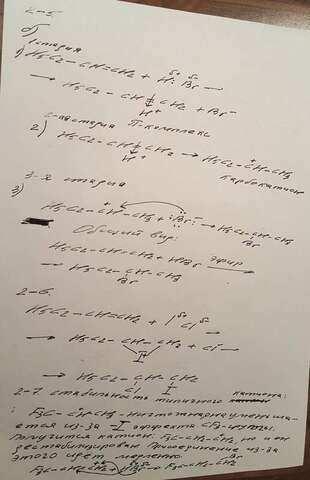 2-5.
б)
1 стадия
1) H5C2-CH=CH2 + H:Br →
→ H5C2-CH=CH2 + Br⁻
H⁺
2-ая стадия П-комплекс
2) H5C2-CH=CH2 → H5C2-CH-CH3
H⁺ карбокатион
3-я стадия
3)
H5C2-CH-CH3 + :Br:⁻ → H5C2-CH-CH3
Br
Общий вид:
H5C2-CH=CH2 + HBr эфир
→ H5C2-CH-CH3
Br
2-6.
H5C2-CH=CH2 + I Cl →
→ H5C2-CH-CH2 + Cl⁻ →
I
→ H5C2-CH-CH2
Cl I
2-7 стабильность типичного катиона
: F3C-CH-CH3 - уменьша-
ется из-за -I эффекта CF3-группы.
получится катион F3C-CH2-CH2 но он
дестабилизирован Присоединение из-за
этого идет медленно. Br